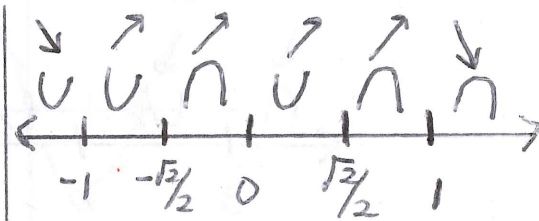 ↘ ↗ ↗ ↗ ↗ ↘
∪ ∪ ∩ ∪ ∩ ∩
-1 -√2/2 0 √2/2 1